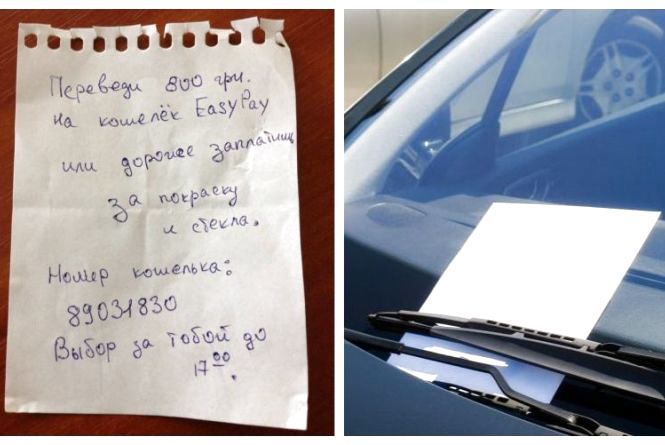 Переведи 800 грн.
на кошелёк EasyPay
или дороже заплатишь
за покраску
и стекла.
Номер кошелька:
89031830
Выбор за тобой до
17⁰⁰.